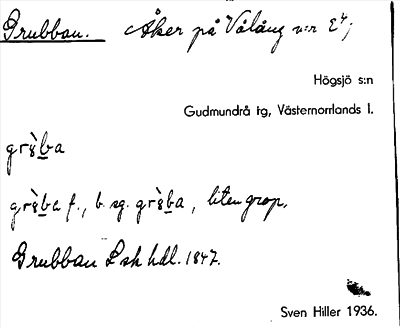 Grubban. Åker på Vålång n:r 2⁴;
Högsjö s:n
Gudmundrå tg, Västernorrlands l.
grȣ̀ba
grȣ̀ba f., b. sg. grȣ̀ba, liten grop.
Grubban Lsk hdl. 1847.
Sven Hiller 1936.